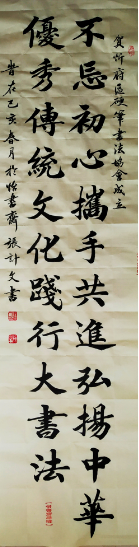 賀忻府區硬筆書法協會成立
不忘初心攜手共進弘揚中華
優秀傳統文化踐行大書法
時在己亥春月於怡墨齋張計文書